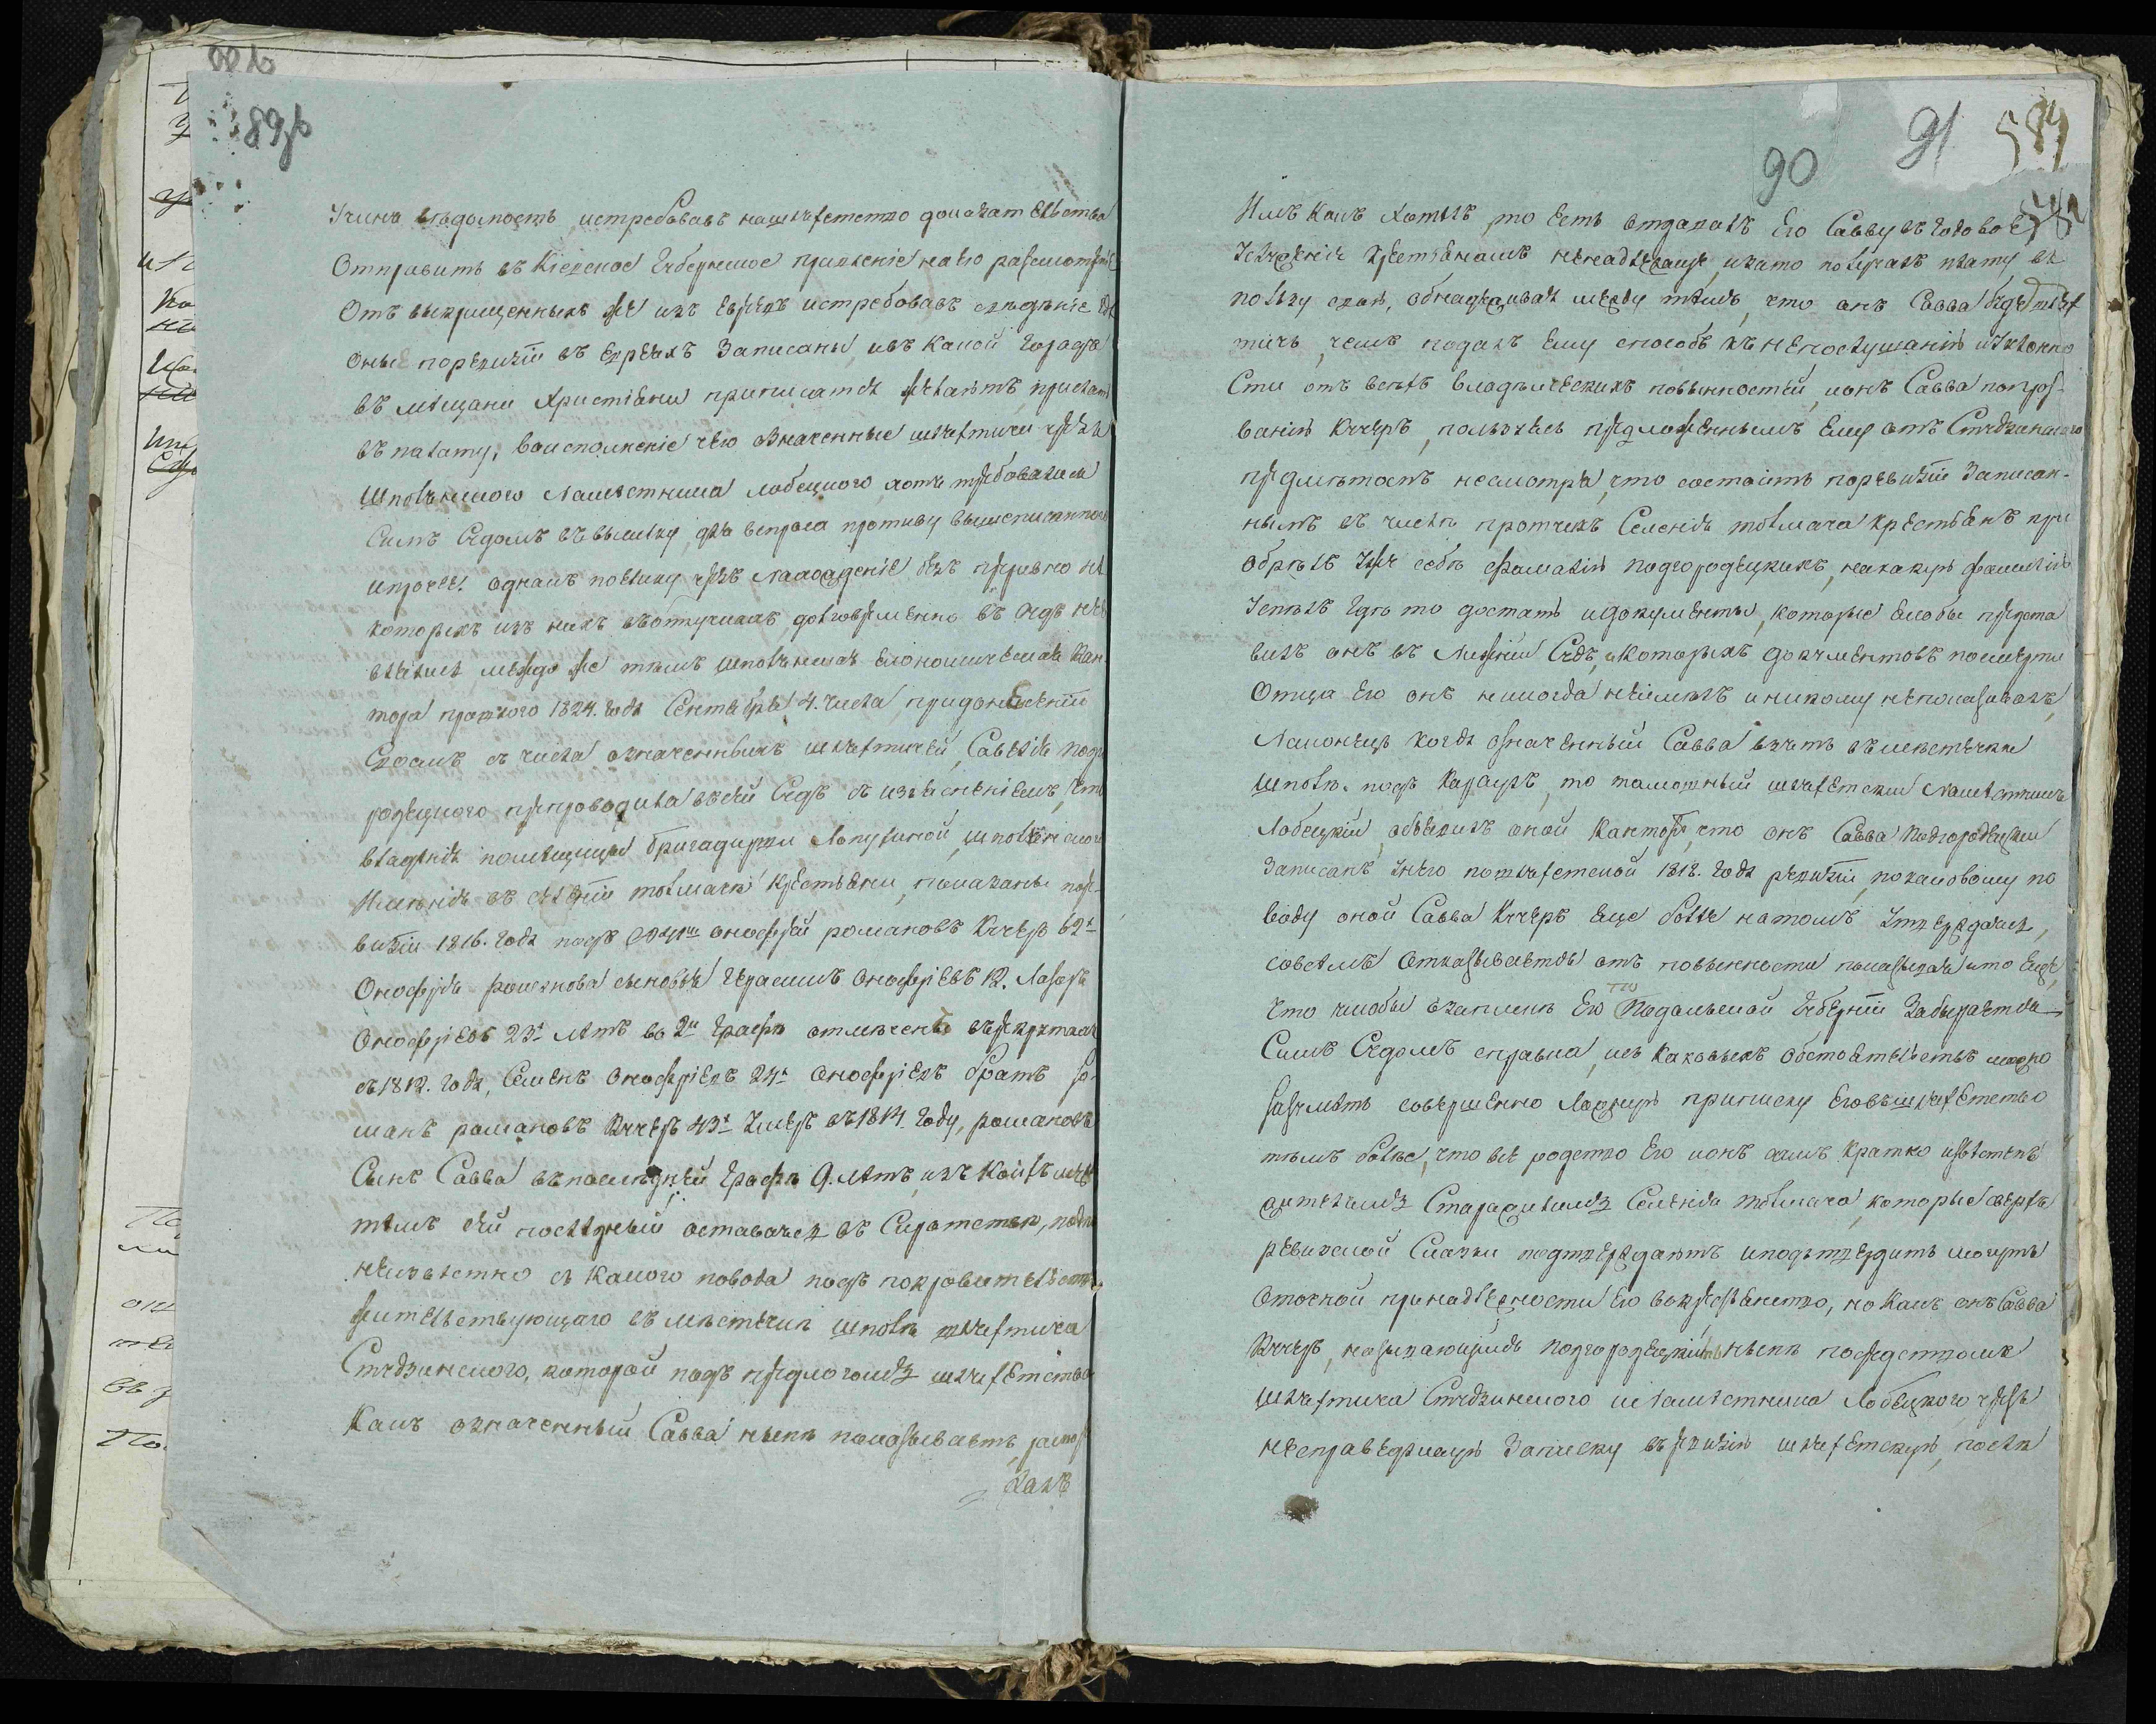 89 об
Учинa вѣдомость, истребовавъ нашляхетство доказательства
Отправить въ Кіевское Губернское правленіе на его разсмотреніе
Отъ выкрещенныхъ же изъ Евреевъ истребовавъ сведѣніе где
оные поревизіи въ Евреяхъ Записаны, ивъ какой городъ
въ мѣщани Христіяни приписатся желаютъ, прислать
въ палату, воисполненіе чего Означенные шляхтичи чрезъ
Шполянского Намѣстника Лобецкого, хотя требовались
Симъ Судомъ въвысылку, для вспроса противу вышеписанного
ипрочее. однакъ поелику чрезъ Нахожденіе безпрерывно не
которыхъ изъ нихъ вотлучкахъ, долговременно въ Судъ не
влялись между же тѣмъ шполянская Економическая Кан-
тора прошлого 1824. года Сентября 4. числа, придонесеніи
Своемъ съ числа означенныхъ шляхтичей, Савелія Подго
родецкого препроводила всей Судъ съ изъясненіемъ, что
владенія помещицы бригадирши Лопухиной, шполянского
Именія въ селеніи толмачѣ крестьяни, показаны поре-
визіи 1816. года подъ онофрей романовъ Кучеръ 62ъ
Онофрія романова сыновья Герасимъ Онофріевъ 12. Лазарь
Онофріевъ 23ъ лѣтъ во 2й Графѣ отмѣчены врекрутахъ
съ1812. года, Семенъ Онофріевъ 24ъ Онофріевъ братъ ро-
манъ романовъ Кучеръ 43ъ Умеръ въ1814. году, романовъ
Сынъ Савва въпослѣдней Графѣ 9. лѣтъ, изъ коихъ между
тѣмъ сей послѣдный оставаясь въ Сиротствѣ, подпалъ
неизвѣстно съ какого повода подъ покровительство
жительствующаго въ мѣстечкѣ шполѣ шляхтича
Студзинского, которой подъ предлогомъ шляхетства
Какъ означенный Савва нынѣ показываетъ, распо
лагалъ
90 91 584
582
Имъ какъ хотелъ, то есть отдавалъ Его Савву въ Годовое
Услуженіе крестьянамъ ненадлежаще, изато получалъ плату въ
пользу свою, обнадеживая между тѣмъ, что онъ Савва будетъ шлях
тичъ, чемъ подалъ Ему способъ къ непослушанію иУклонно
Сти отъ всехъ владѣльческихъ повинностей, ионъ Савва попроз-
ванію Кучеръ, пользуясь предложеннымъ Ему отъ Студзинского
предметомъ несмотря, что состоитъ поревизіи Записан-
нымъ въ числѣ протчихъ Селенія толмача крестьянъ при
обрелъ Уже себѣ фамилію Подгородецкихъ, накакую фамилію
Успѣлъ где то достать идокументы, которые Якобы предста
вилъ онъ въ Нижній Судъ, а которыхъ документовъ посмерти
Отца Его онъ никогда неимелъ и никому непоказывалъ,
Наконецъ когда означенный Савва взятъ въ мѣстечки
шполѣ. подъ Караулъ, то таможный шляхетский Намѣстникъ
Лобецкій, объявилъ оной Канторе, что онъ Савва Подгородецкій
Записанъ Унего пошляхетской 1818. года ревизіи, покаковому по
воду оной Савва Кучеръ еще более натомъ Утверждаясь,
совсемъ Отказывается отъ повинности показывая ито Еще,
что якобы взаписки Его поПодольской Губерніи Забирается
Симъ Судомъ справка, изъ каковыхъ обстоятельствъ можно
разуметь совершенно Ложную приписку Его въшляхетство
тѣмъ более, что все родство Его ионъ самъ кратко извѣстенъ
жителямъ Старожиламъ Селенія толмача, которые сверхъ
ревизской Сказки подтверждаютъ иподътвердить могутъ
Оточной принадлежности Его вокрестьянство, но какъ онъ Савва
Кучеръ, называющійся Подгородецкимъ нынѣ посредствомъ
шляхтича Студзинского иНамѣстника Лобецкого чрезъ
несправедливую Записку въревизію шляхетскую, послѣ